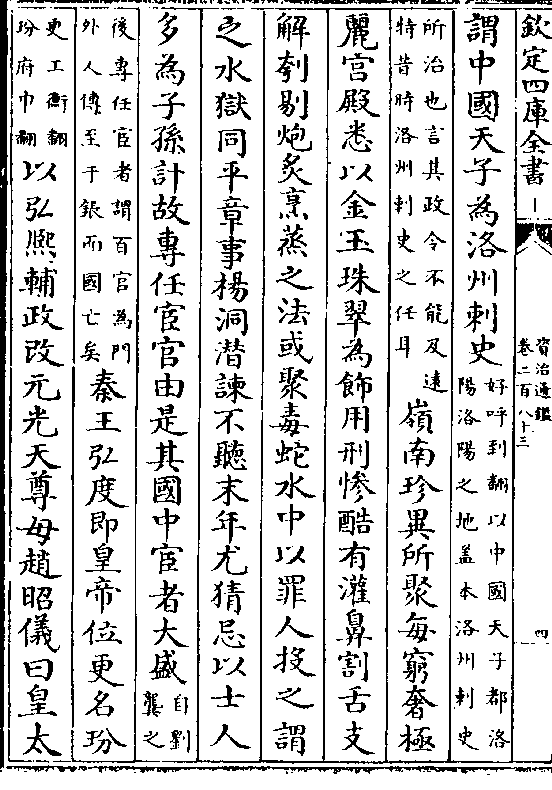 欽定四庫全書
資治通鑑
卷二百八十三
四
謂中國天子為洛州刺史
好呼到翻以中國天子都洛
陽洛陽之地蓋本洛州刺史
所治也言其政令不能及逺
特昔時洛州刺史之任耳
嶺南珍異所聚每窮奢極
麗宫殿悉以金玉珠翠為飾用刑慘酷有灌鼻割舌支
解刳剔炮炙烹蒸之法或聚毒蛇水中以罪人投之謂
之水獄同平章事楊洞潜諫不聽末年尤猜忌以士人
多為子孫計故專任宦官由是其國中宦者大盛
自劉
龑之
後專任宦者謂百官為門
外人傳至于鋹而國亡矣
秦王弘度即皇帝位更名玢
更工衡翻
玢府巾翻
以弘熈輔政改元光天尊母趙昭儀曰皇太